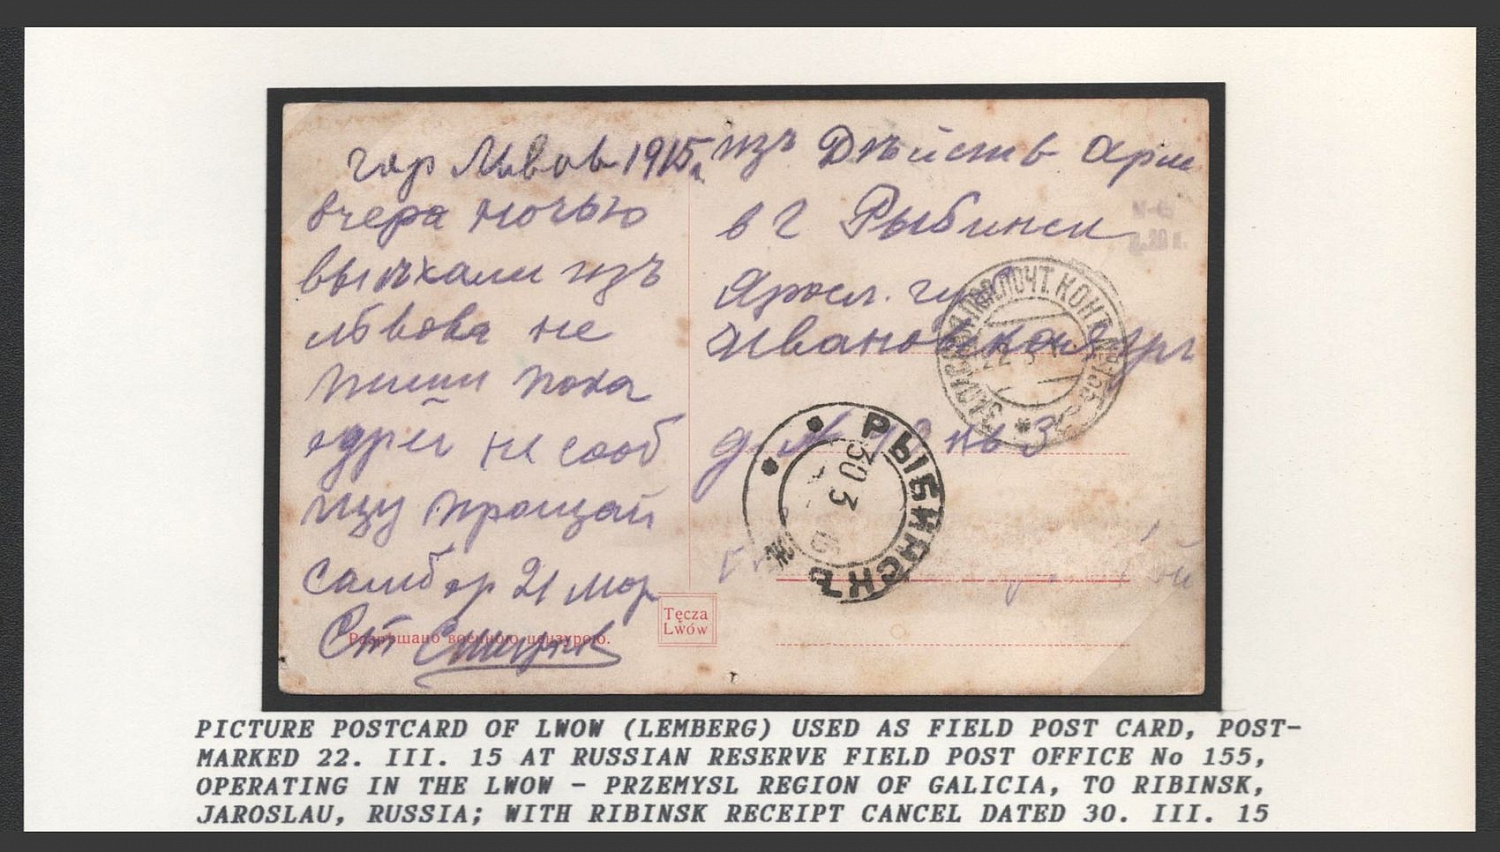 гор Львов 1915 г.
вчера ночью
выѣхали изъ
львова не
пиши пока
адрес не сооб
щу прощай
Самбор 21 мар
Ст
Разрѣшано военною цензурою.
Tęcza
Lwów
изъ Дѣйств Арм
в г Рыбинск
Яросл. губ
Ивановская
д № 3
ЗАПАСН. ПОЛ. ПОЧТ. КОНТ. № 155
22 3
РЫБИНСКЪ
30 3 15
PICTURE POSTCARD OF LWOW (LEMBERG) USED AS FIELD POST CARD, POST-
MARKED 22. III. 15 AT RUSSIAN RESERVE FIELD POST OFFICE No 155,
OPERATING IN THE LWOW - PRZEMYSL REGION OF GALICIA, TO RIBINSK,
JAROSLAU, RUSSIA; WITH RIBINSK RECEIPT CANCEL DATED 30. III. 15